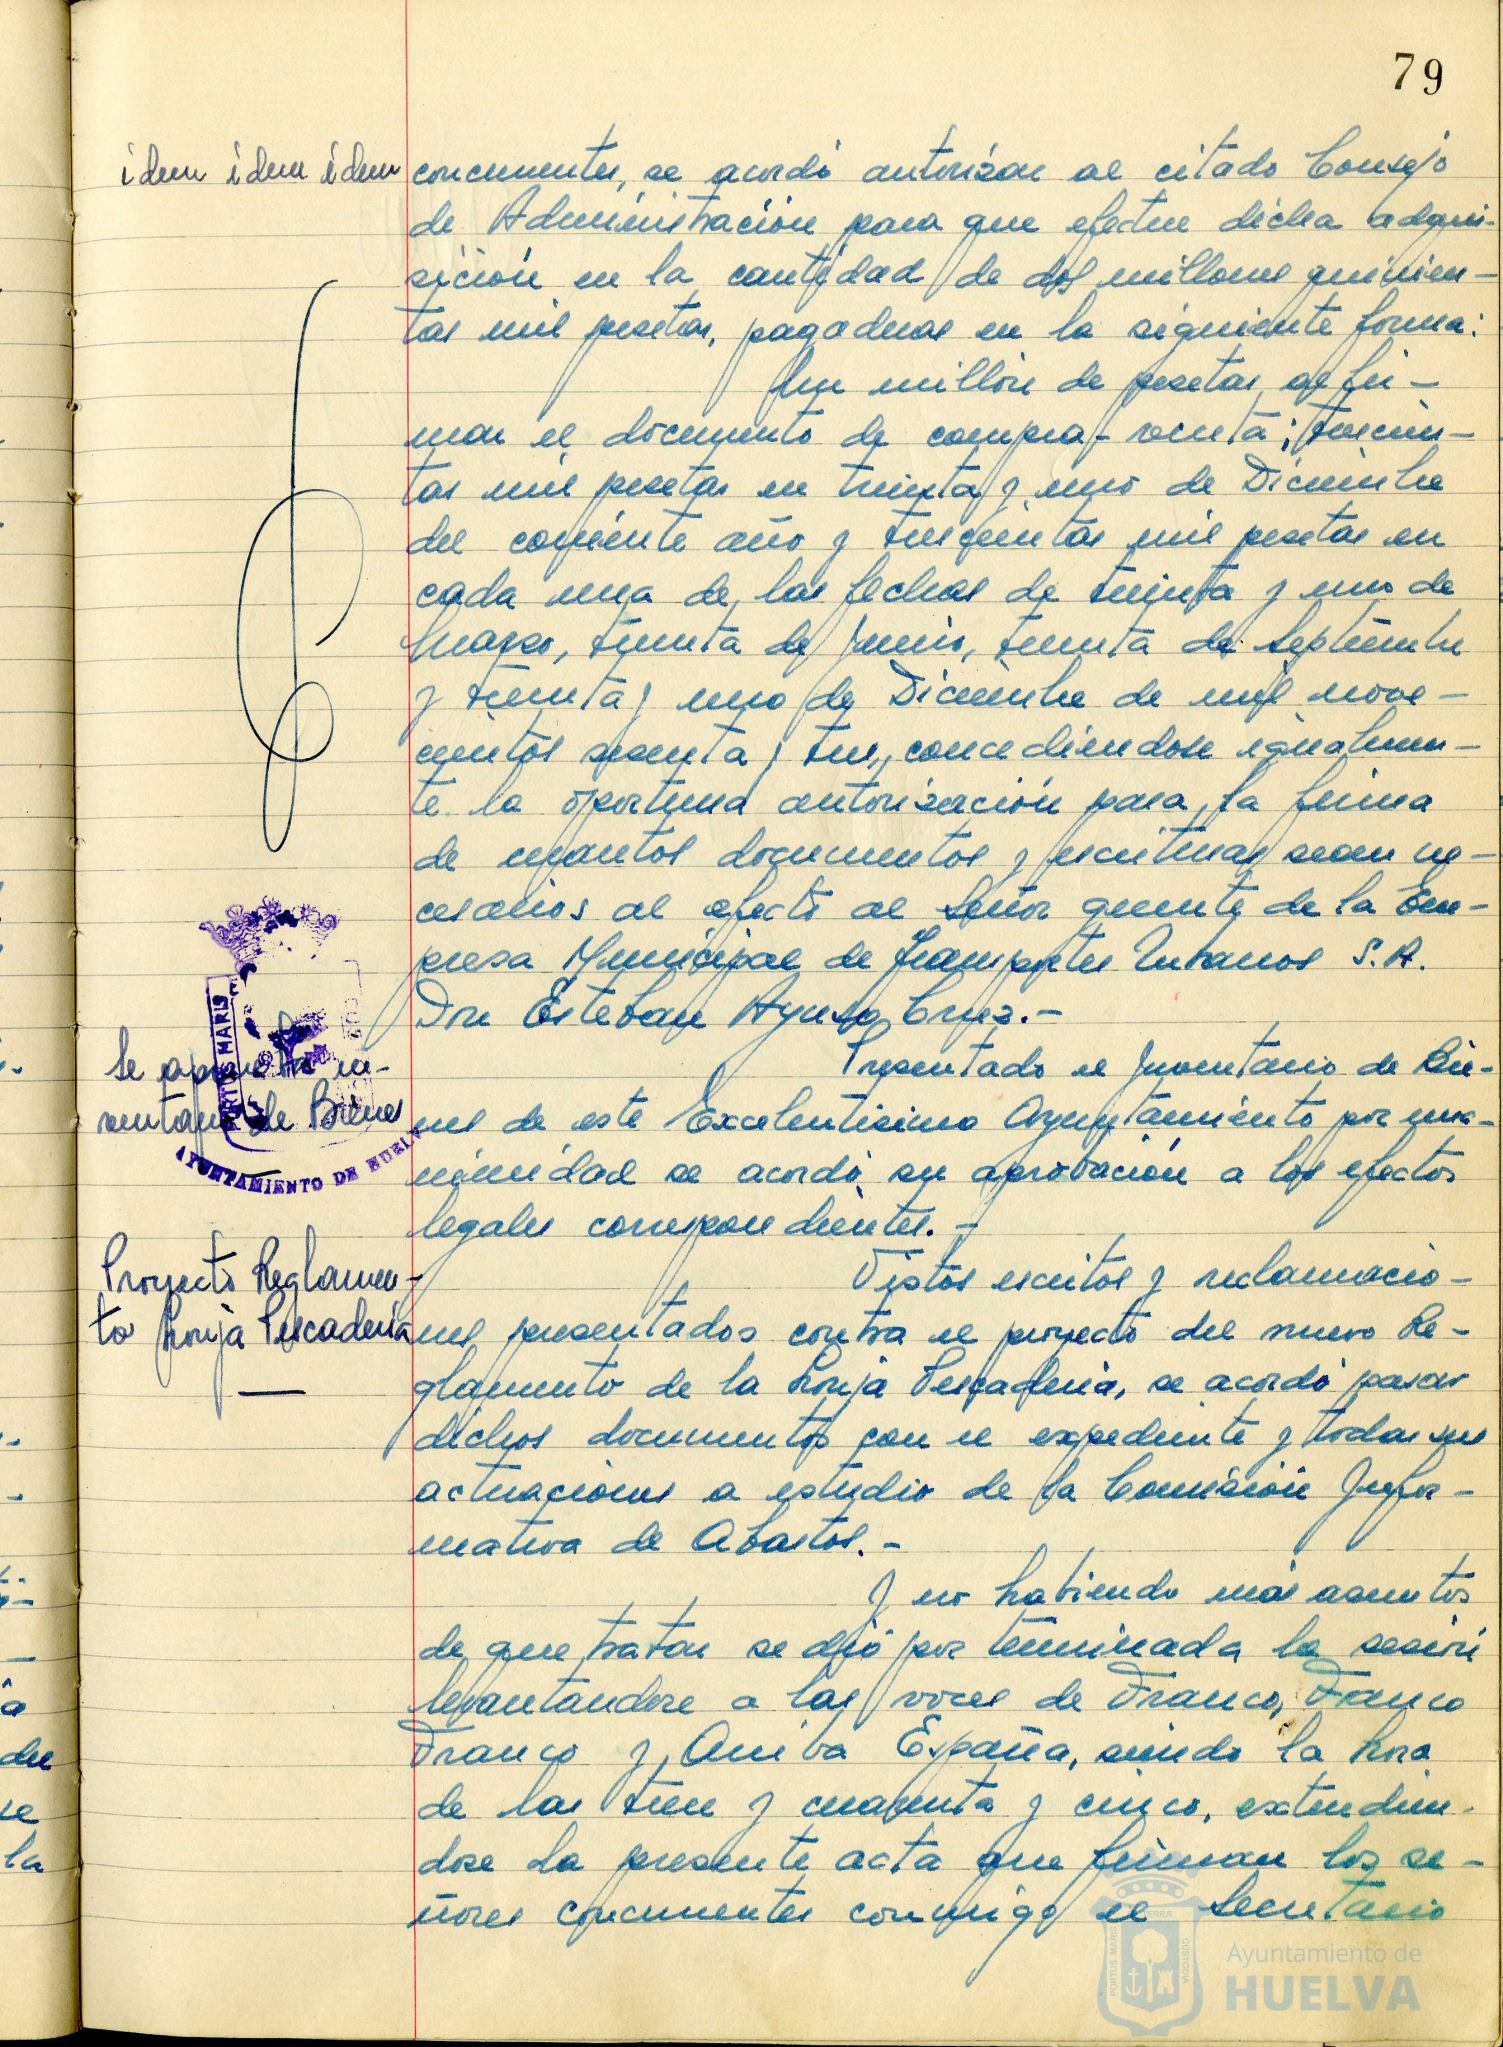 79
idem idem idem
concurrentes, se acordó autorizar al citado Consejo
de Administración para que efectue dicha adqui-
sición en la cantidad de dos millones quinien-
tas mil pesetas, pagaderas en la siguiente forma:
Un millón de pesetas al fir-
mar el documento de compra-venta; trescien-
tas mil pesetas en treinta y uno de Diciembre
del corriente año y trescientas mil pesetas en
cada una de las fechas de treinta y uno de
Marzo, treinta de Junio, treinta de Septiembre
y treinta y uno de Diciembre de mil nove-
cientos sesenta y tres, concediendose igualmen-
te la oportuna autorización para la firma
de cuantos documentos y escrituras sean ne-
cesarios al efecto al Señor gerente de la Em-
presa Municipal de Transportes Urbanos S.A.
Don Esteban Ayuso Cruz.-
Se aprueba In-
ventario de Bienes
Presentado el Inventario de Bie-
nes de este Excelentisimo Ayuntamiento por una-
nimidad se acordó su aprobación a los efectos
legales correspondientes.-
Proyecto Reglamen-
to Lonja Pescaderia
Vistos escritos y reclamacio-
nes presentados contra el proyecto del nuevo Re-
glamento de la Lonja Pescaderia, se acordó pasar
dichos documentos con el expediente y todas sus
actuaciones a estudio de la Comisión Infor-
mativa de Abastos.-
Y no habiendo más asuntos
de que tratar se dió por terminada la sesión
levantandose a las voces de Franco, Franco
Franco y Arriba España, siendo la hora
de las trece y cuarenta y cinco, extendien-
dose la presente acta que firman los se-
ñores concurrentes conmigo el Secretario
PORTUS MARIS
AYUNTAMIENTO DE HUELVA
PORTUS MARIS
CUSTODIA
Ayuntamiento de
HUELVA